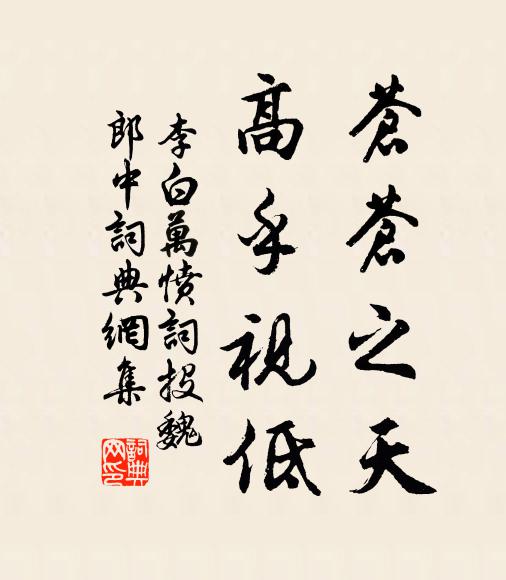 蒼蒼之天
高乎視低
李白萬憤詞投魏
郎中詞典網集
詞典網印